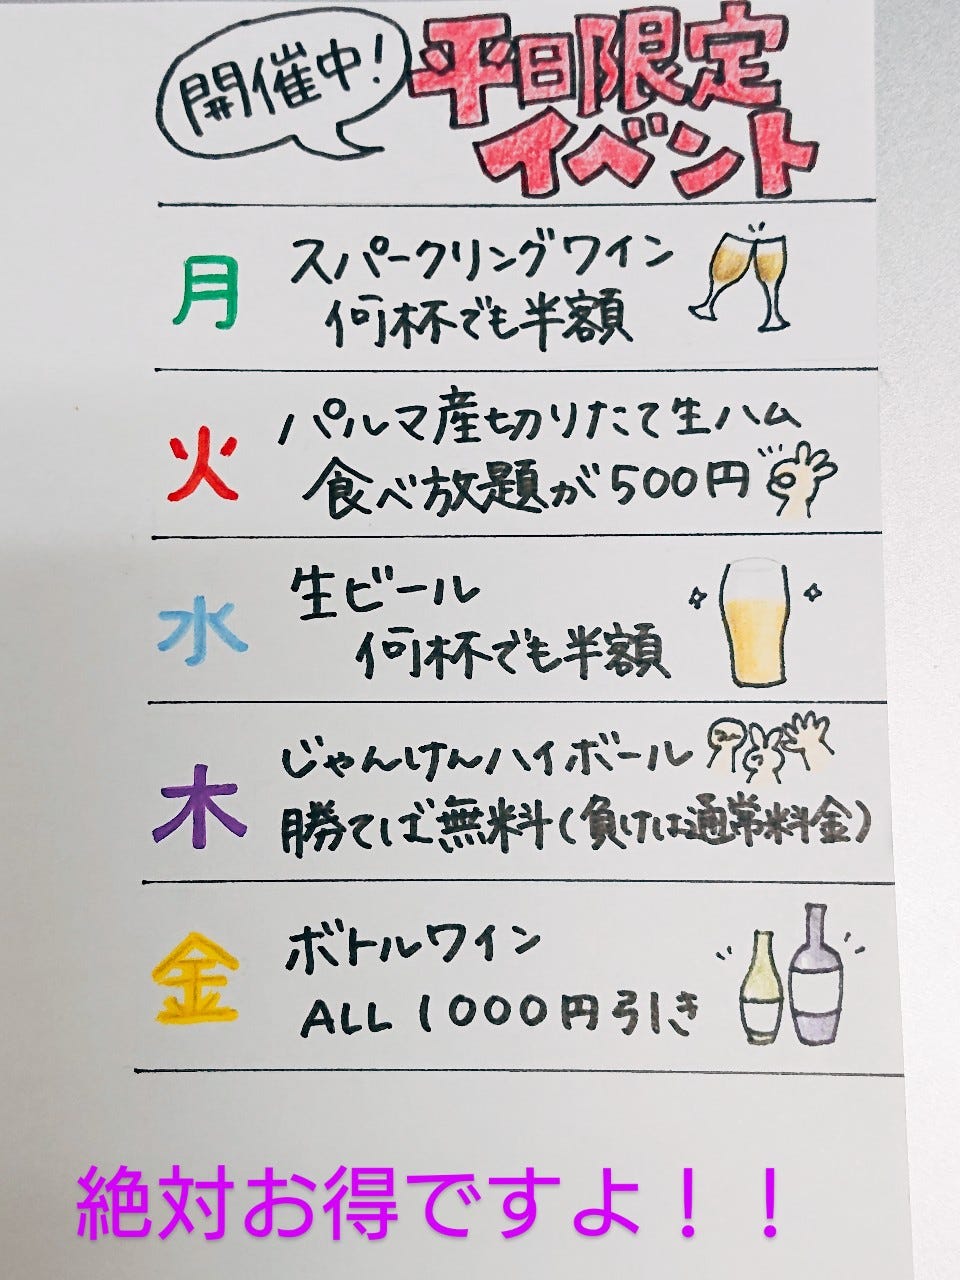 開催中!
平日限定
イベント
月
スパークリングワイン
何杯でも半額
火
パルマ産切りたて生ハム
食べ放題が500円
水
生ビール
何杯でも半額
木
じゃんけんハイボール
勝てば無料(負けは通常料金)
金
ボトルワイン
ALL 1000円引き
絶対お得ですよ！！